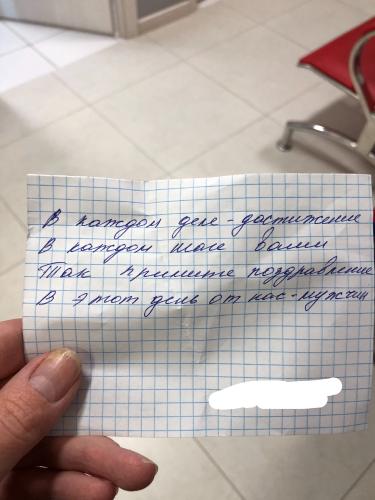 В каждом деле - достижение
В каждом шаге вами
Так примите поздравление
В этот день от нас - мужчин